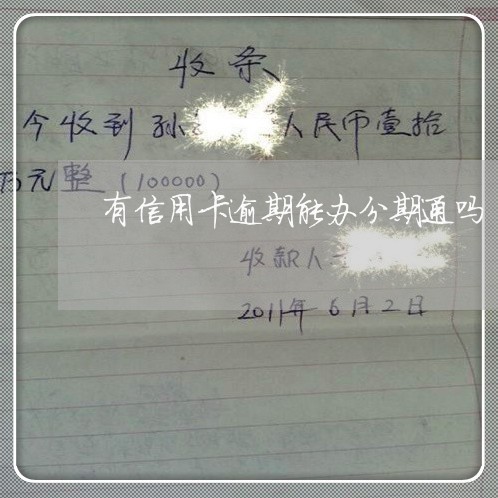 收条
今收到孙 人民币壹拾
万元整(100000)
有信用卡逾期能办分期通吗
收款人
2011年6月2日